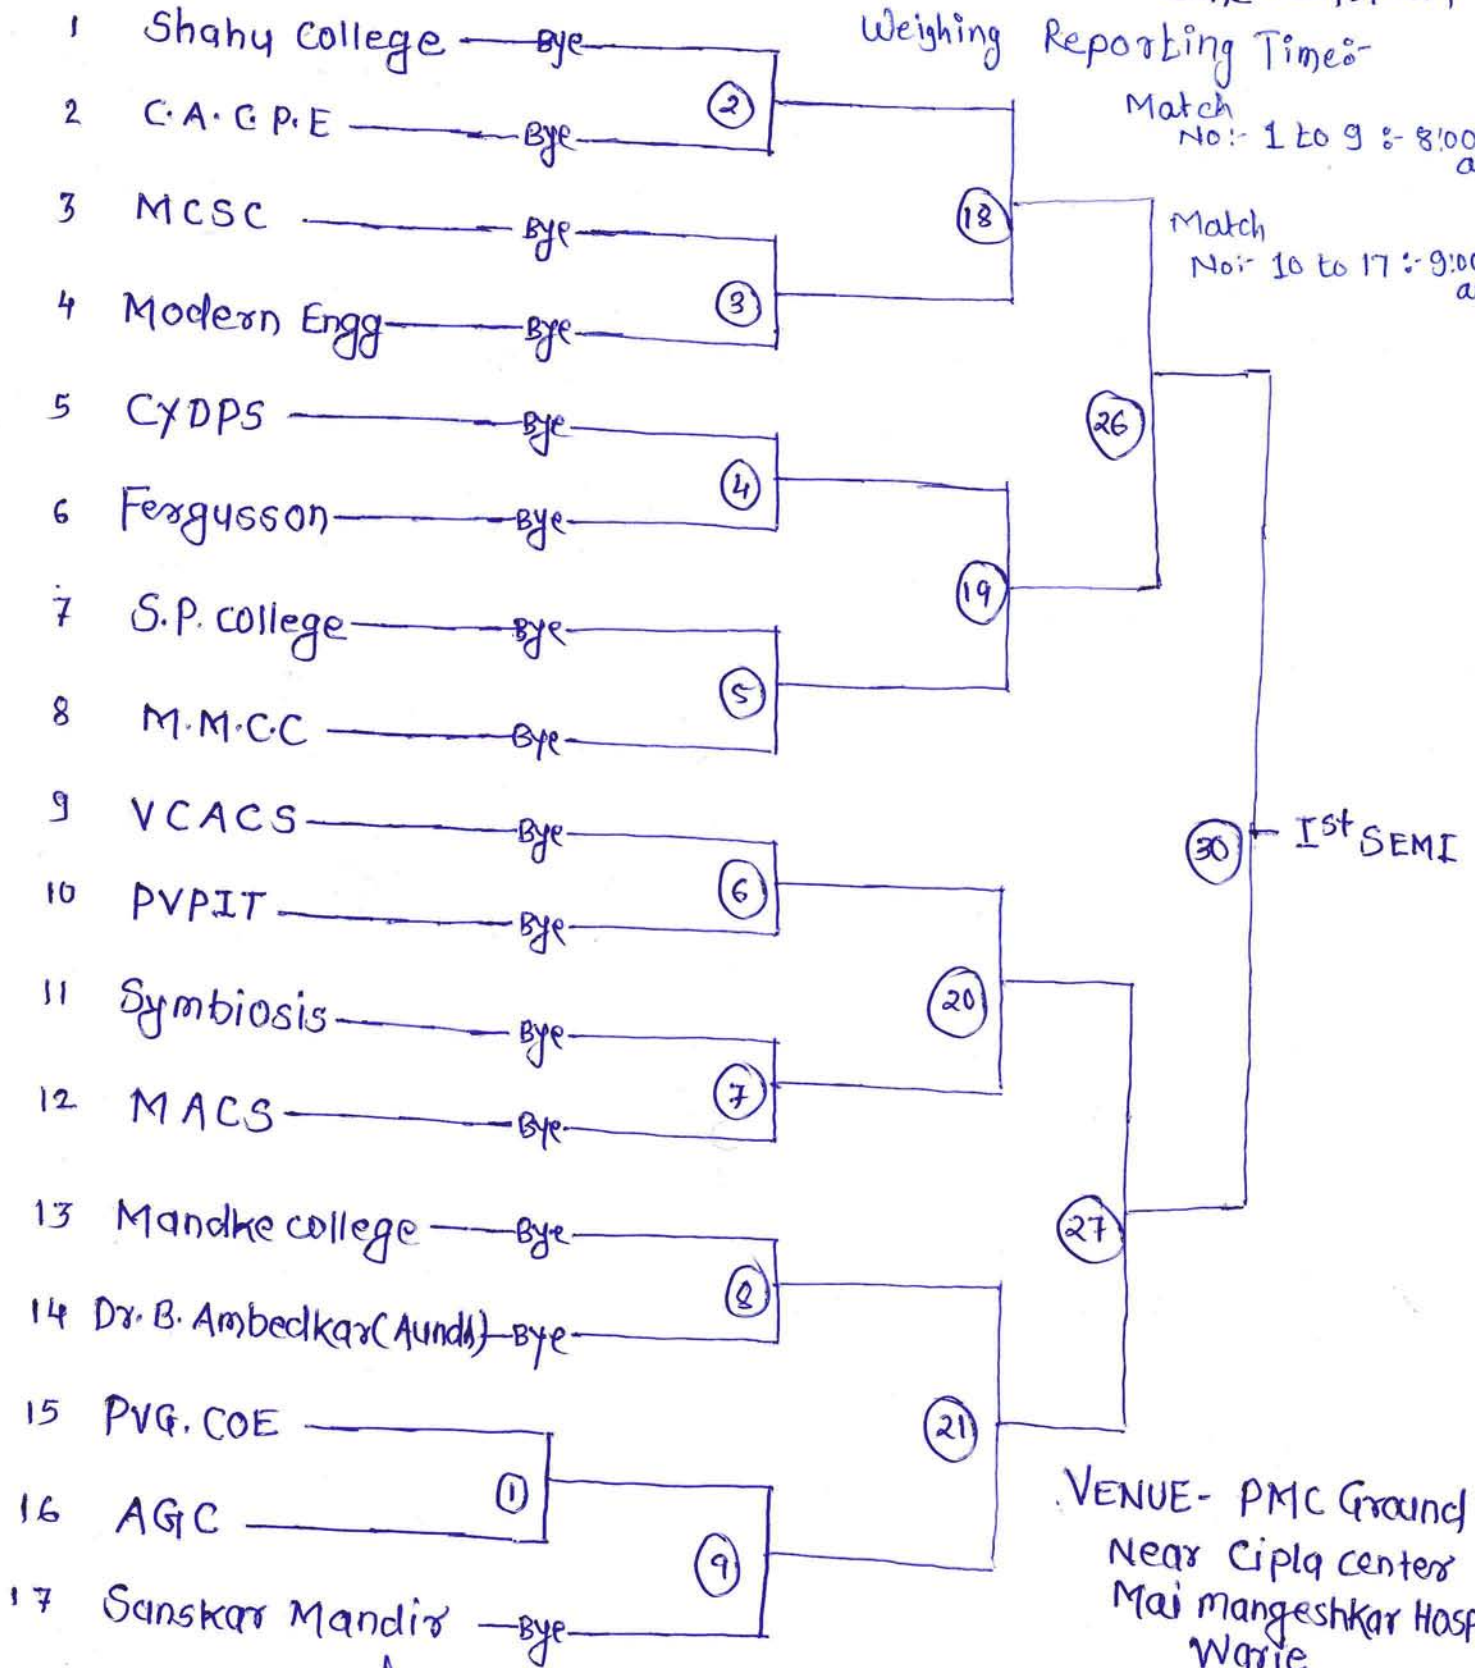 Weighing Reporting Time:-
Match
No:- 1 to 9 :- 8:00
a
Match
No:- 10 to 17 :- 9:00
a
1 Shahu College Bye
2
2 C.A.C.P.E Bye
18
3 MCSC Bye
3
4 Modern Engg Bye
26
5 CYDPS Bye
4
6 Fergusson Bye
19
7 S.P. college Bye
5
8 M.M.C.C Bye
30 Ist SEMI
9 VCACS Bye
6
10 PVPIT Bye
20
11 Symbiosis Bye
7
12 MACS Bye
27
13 Mandke college Bye
8
14 Dr. B. Ambedkar (Aundh) Bye
21
15 PVG. COE
1
16 AGC
9
17 Sanskar Mandir Bye
VENUE- PMC Ground
Near Cipla center
Mai mangeshkar Hosp
Warje